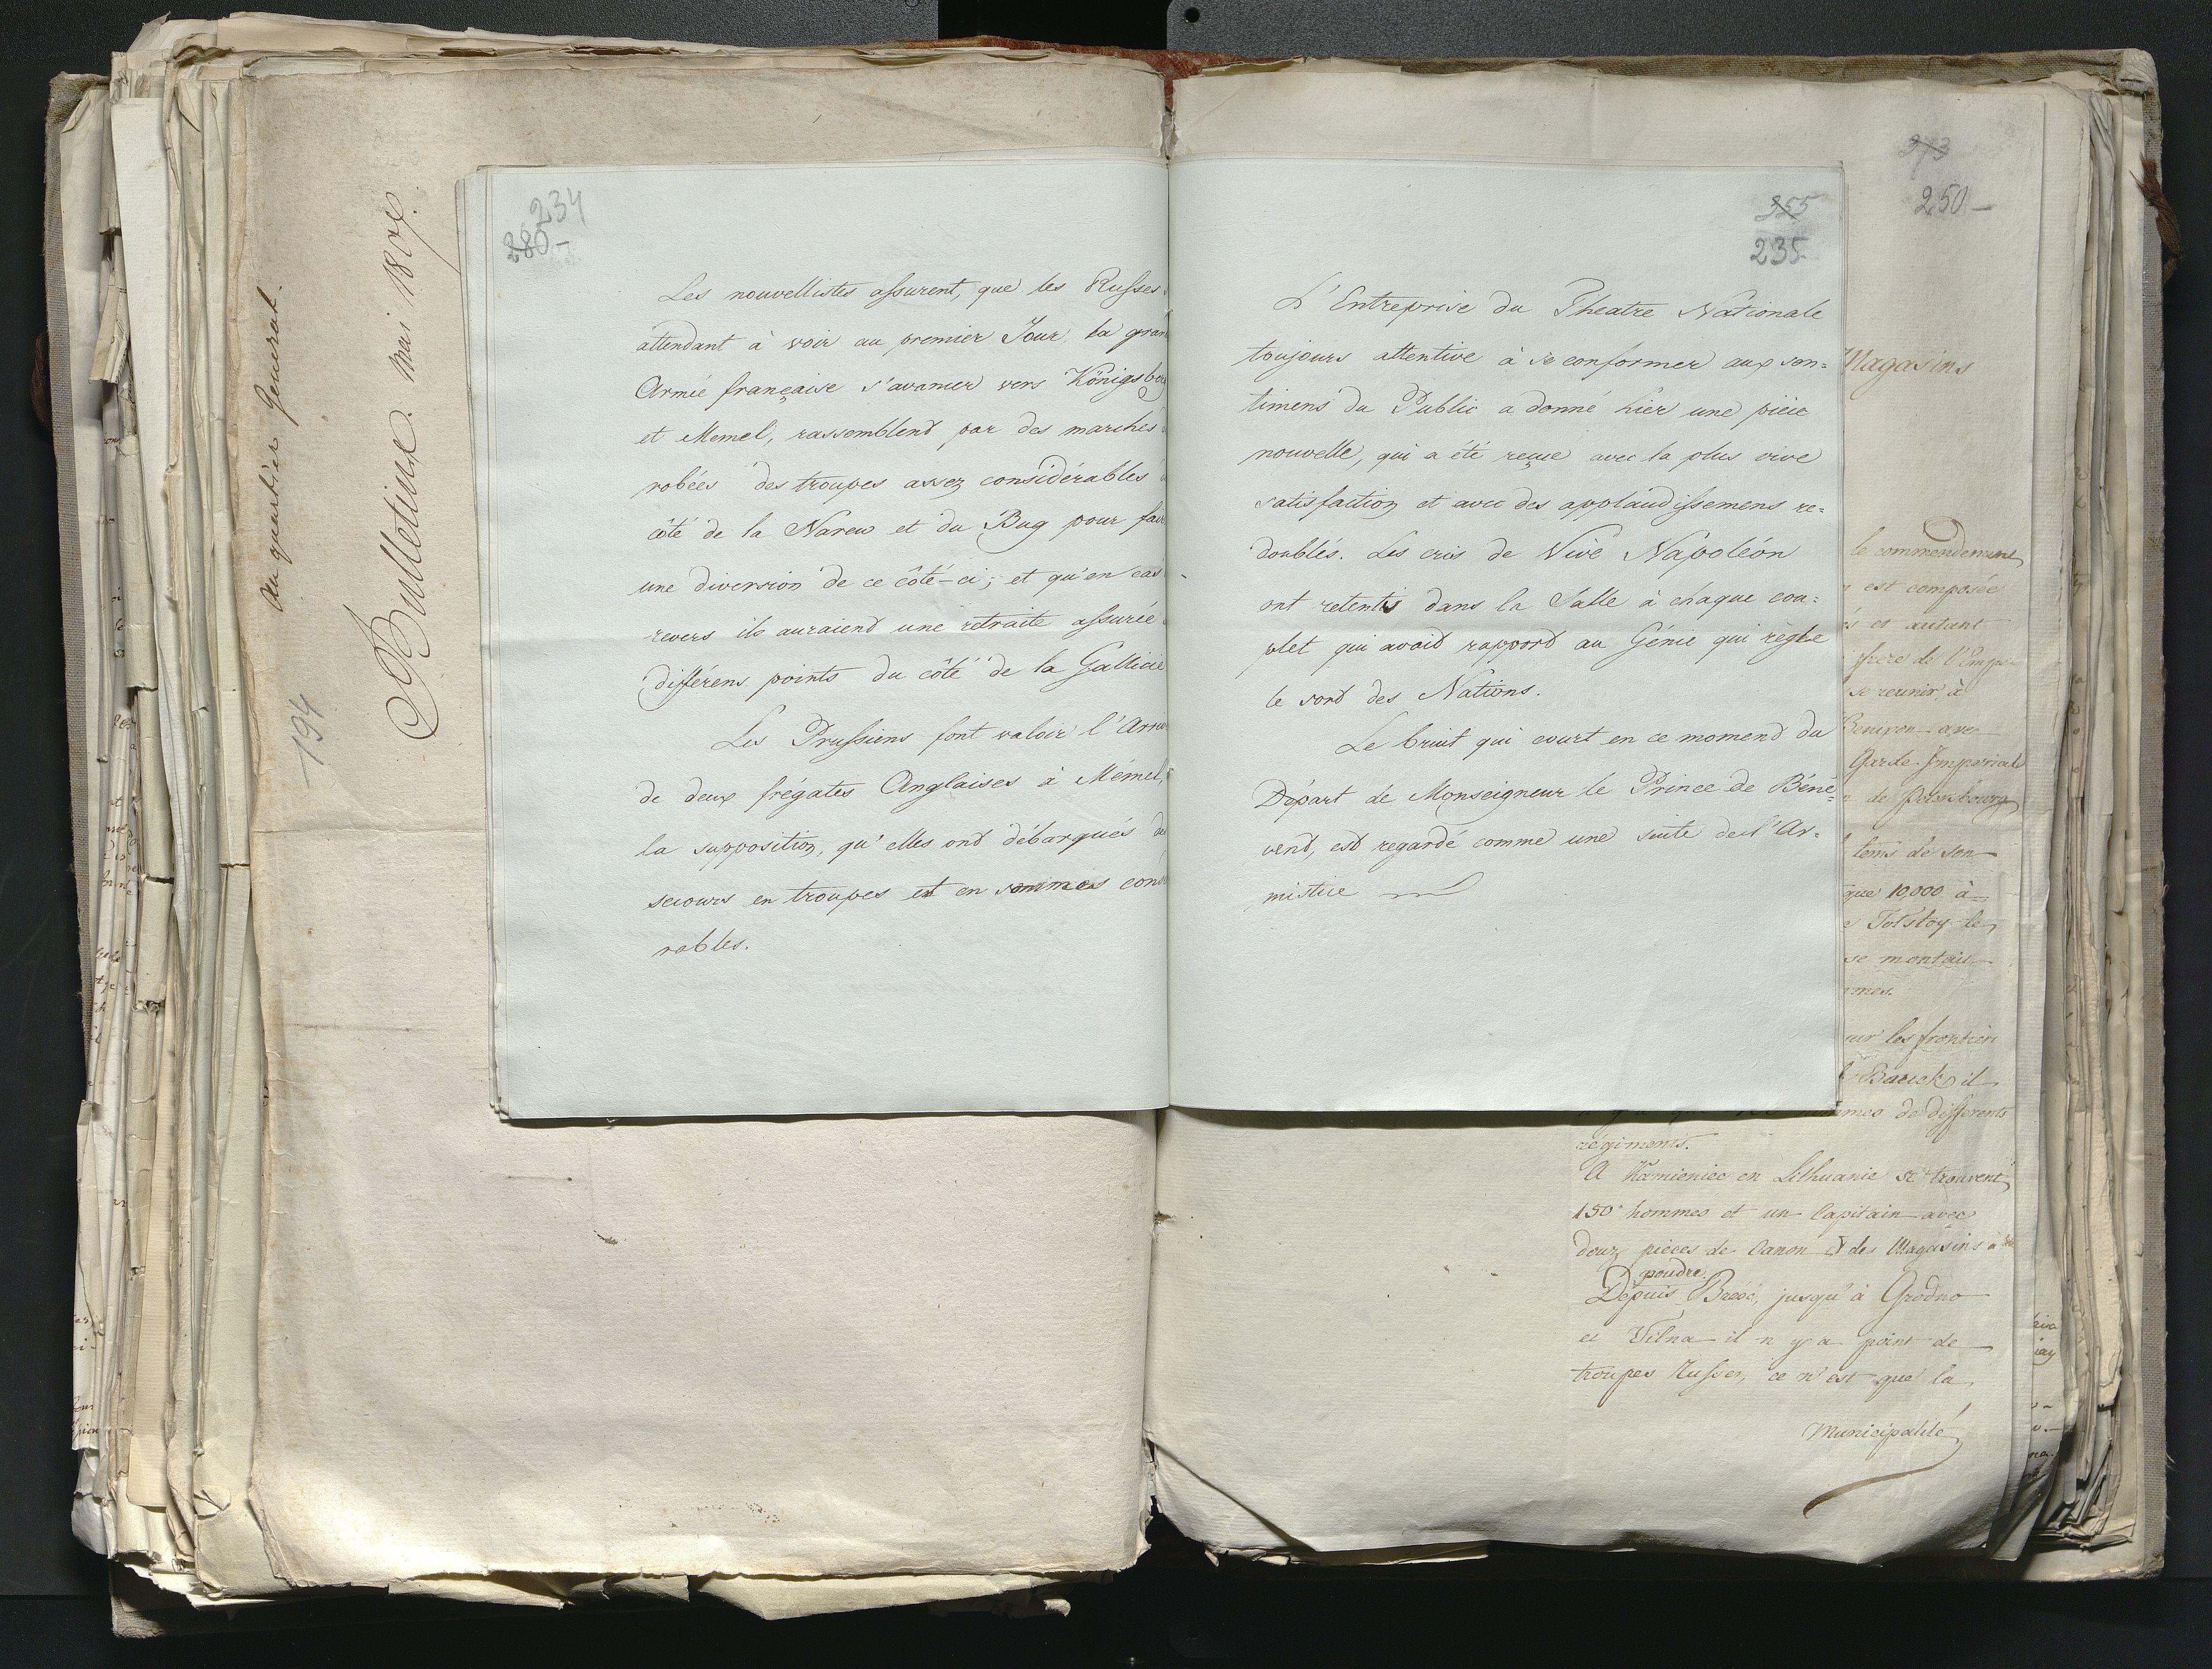 Au quartier General.
Bulletins. Mai 1807.
194
234
280-
Les nouvellistes assurent, que les Russes
attendant à voir au premier Jour, la gran
Armée française s'avancer vers Königsber
et Memel, rassemblent par des marches
robées des troupes assez considérables
côté de la Narew et du Bug pour fair
une diversion de ce côté-ci; et qu'en cas
revers ils auraient une retraite assurée
différens points du côté de la Gallicie
Les Prussiens font valoir l'Arriv
de deux frégates Anglaises à Mémel,
la supposition, qu'elles ont débarqués de
secours en troupes et en sommes consi
rables.
355
235
L'Entreprise du Theatre Nationale
toujours attentive à se conformer aux sen=
timens du Public a donné hier une pièce
nouvelle, qui a été reçue avec la plus vive
satisfaction et avec des applaudissemens re=
doublés. Les cris de Vive Napoléon
ont retentis dans la Salle à chaque cou=
plet qui avoit rapport au Génie qui règle
le sort des Nations.
Le bruit qui court en ce moment du
Départ de Monseigneur le Prince de Béné=
vent, est regardé comme une suite de l'Ar=
mistice
273
250-
Magasins
le commendement
est composée
és et autant
frere de l'Empe
se reunir à
Garde Imperiale
de Petersbourg
tems de son
que 10,000 à
Tolstoy le
se montait
mmes.
sur les frontièr
il
hommes de differents
régiments.
A Kamieniec en Lithuanie se trouvent
150 hommes et un Capitain avec
deux pièces de Canon & des Magasins à
poudre.
Depuis Bresc, jusqu'à Grodno
et Vilna il n'y a point de
troupes Russes, ce n'est que la
Municipalité